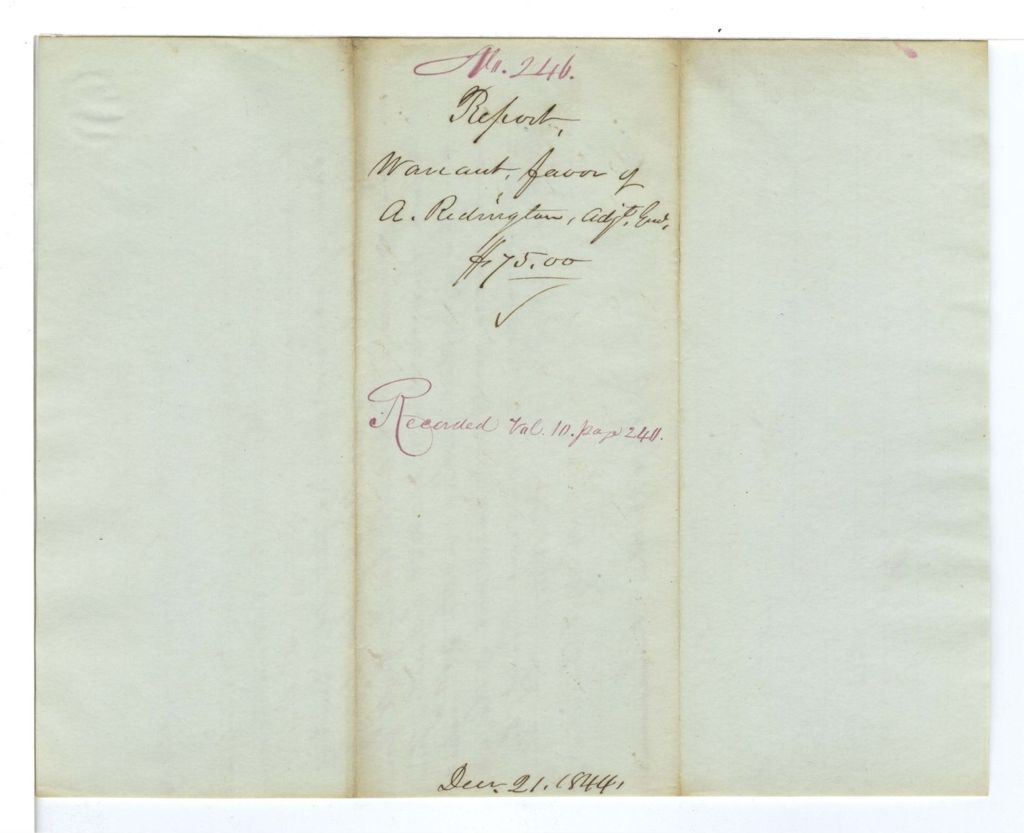 No. 246.
Report,
Warrant, favor of
A. Redington, Adjt. Genl.
$75.00
Recorded Vol. 10. page 240.
Decr. 21. 1844.